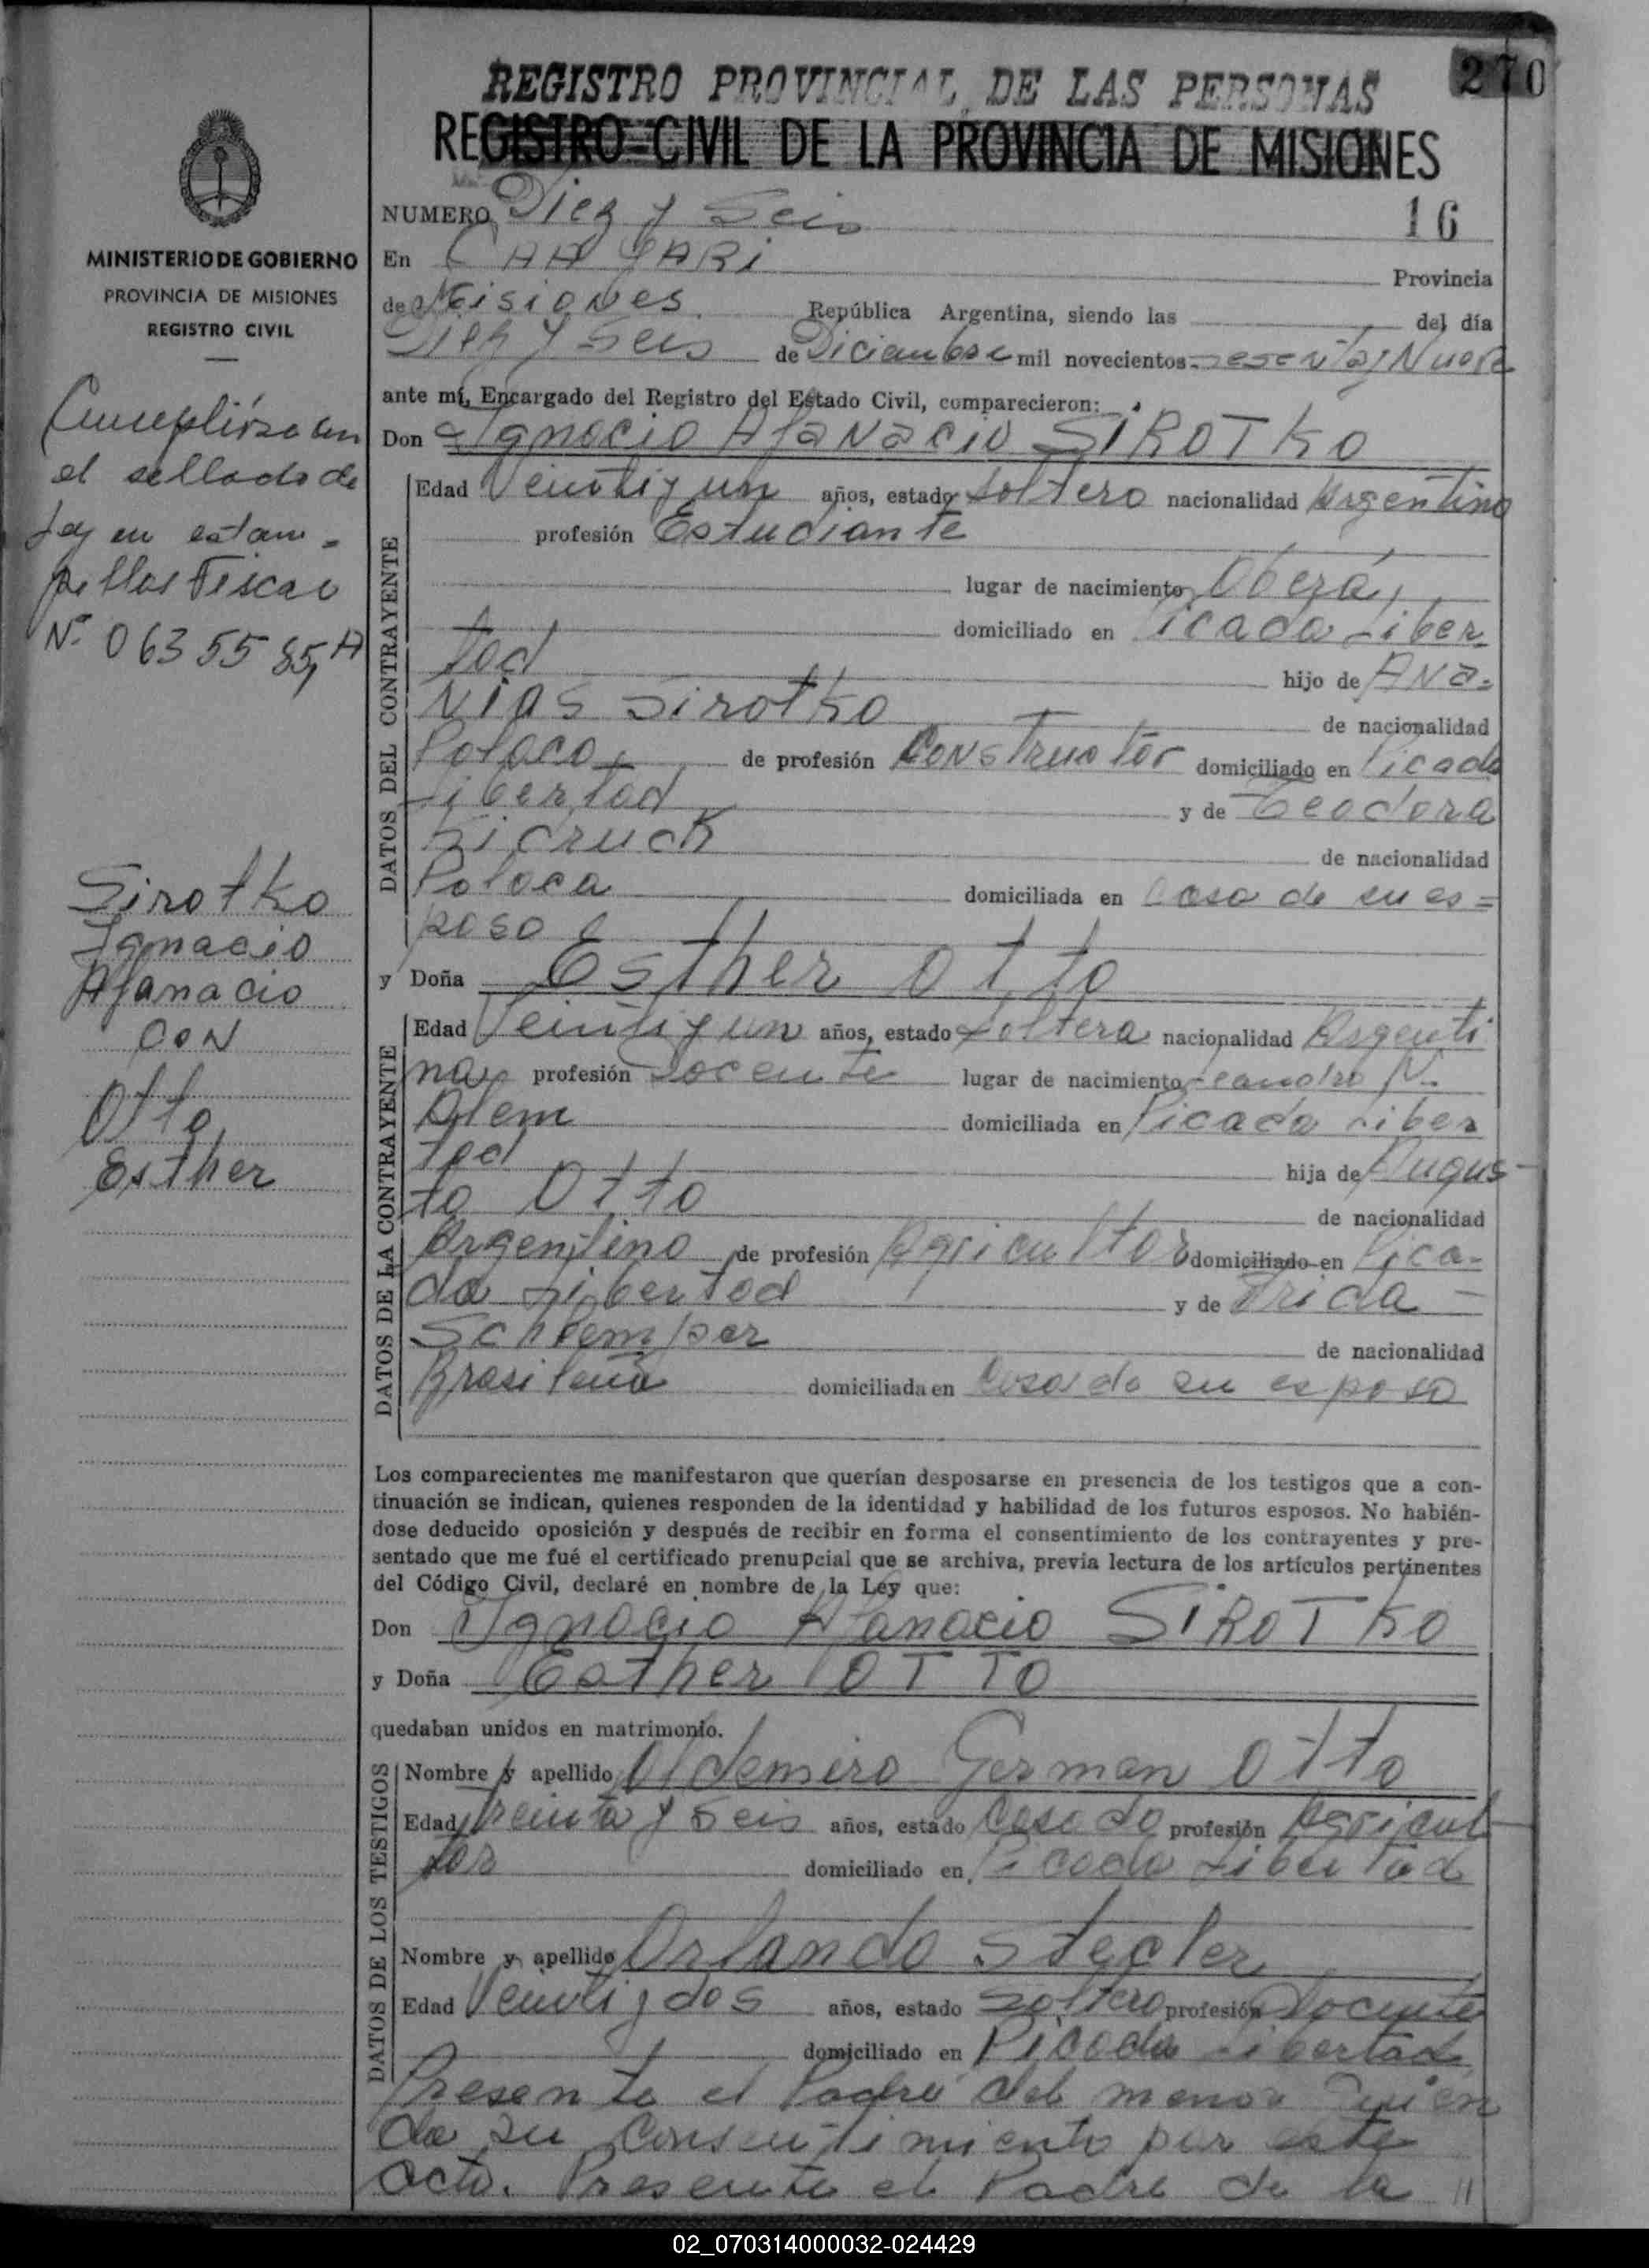 270
REGISTRO PROVINCIAL DE LAS PERSONAS
REGISTRO CIVIL DE LA PROVINCIA DE MISIONES
MINISTERIO DE GOBIERNO
PROVINCIA DE MISIONES
REGISTRO CIVIL
Cumplióse con
el sellado de
Ley en estam-
pillas Fiscal
Nº 0635585,A
Sirotko
Ignacio
Afanacio
CON
Otto
Esther
NUMERO Diez y Seis 16
En CAA YARi Provincia
de Misiones República Argentina, siendo las del día
Diez y Seis de Diciembre mil novecientos sesenta y Nueve
ante mí, Encargado del Registro del Estado Civil, comparecieron:
Don Ignacio Afanacio SIROTKO
DATOS DEL CONTRAYENTE
Edad Veintiyun años, estado Soltero nacionalidad Argentino
profesión Estudiante
lugar de nacimiento Oberá,
domiciliado en Picada Liber-
tad hijo de ANa=
NIAS Sirotko de nacionalidad
Polaco de profesión Constructor domiciliado en Picada
Libertad y de Teodora
Kicruck de nacionalidad
Polaca domiciliada en Casa de su es=
poso
y Doña Esther Otto
DATOS DE LA CONTRAYENTE
Edad Veintiyun años, estado Soltera nacionalidad Argenti
na, profesión Docente lugar de nacimiento Leandro N.
Alem domiciliada en Picada Liber
tad hija de Augus-
to Otto de nacionalidad
Argentino de profesión Agricultor domiciliado en Pica-
da Libertad y de Frida -
Schlemper de nacionalidad
Brasileña domiciliada en Casa de su esposo
Los comparecientes me manifestaron que querían desposarse en presencia de los testigos que a con-
tinuación se indican, quienes responden de la identidad y habilidad de los futuros esposos. No habién-
dose deducido oposición y después de recibir en forma el consentimiento de los contrayentes y pre-
sentado que me fué el certificado prenupcial que se archiva, previa lectura de los artículos pertinentes
del Código Civil, declaré en nombre de la Ley que:
Don Ignacio Afanacio SIROTKO
y Doña Esther OTTO
quedaban unidos en matrimonio.
DATOS DE LOS TESTIGOS
Nombre y apellido Oldemiro German Otto
Edad Treinta y Seis años, estado Casado profesión Agricul
tor domiciliado en Picada Libertad
Nombre y apellido Orlando Stegler
Edad Veintiydos años, estado Soltero profesión Docente
domiciliado en Picada Libertad
Presente el Padre del menor Quien
da su Consentimiento por este
acto. Presente el Padre de la //
02_070314000032-024429